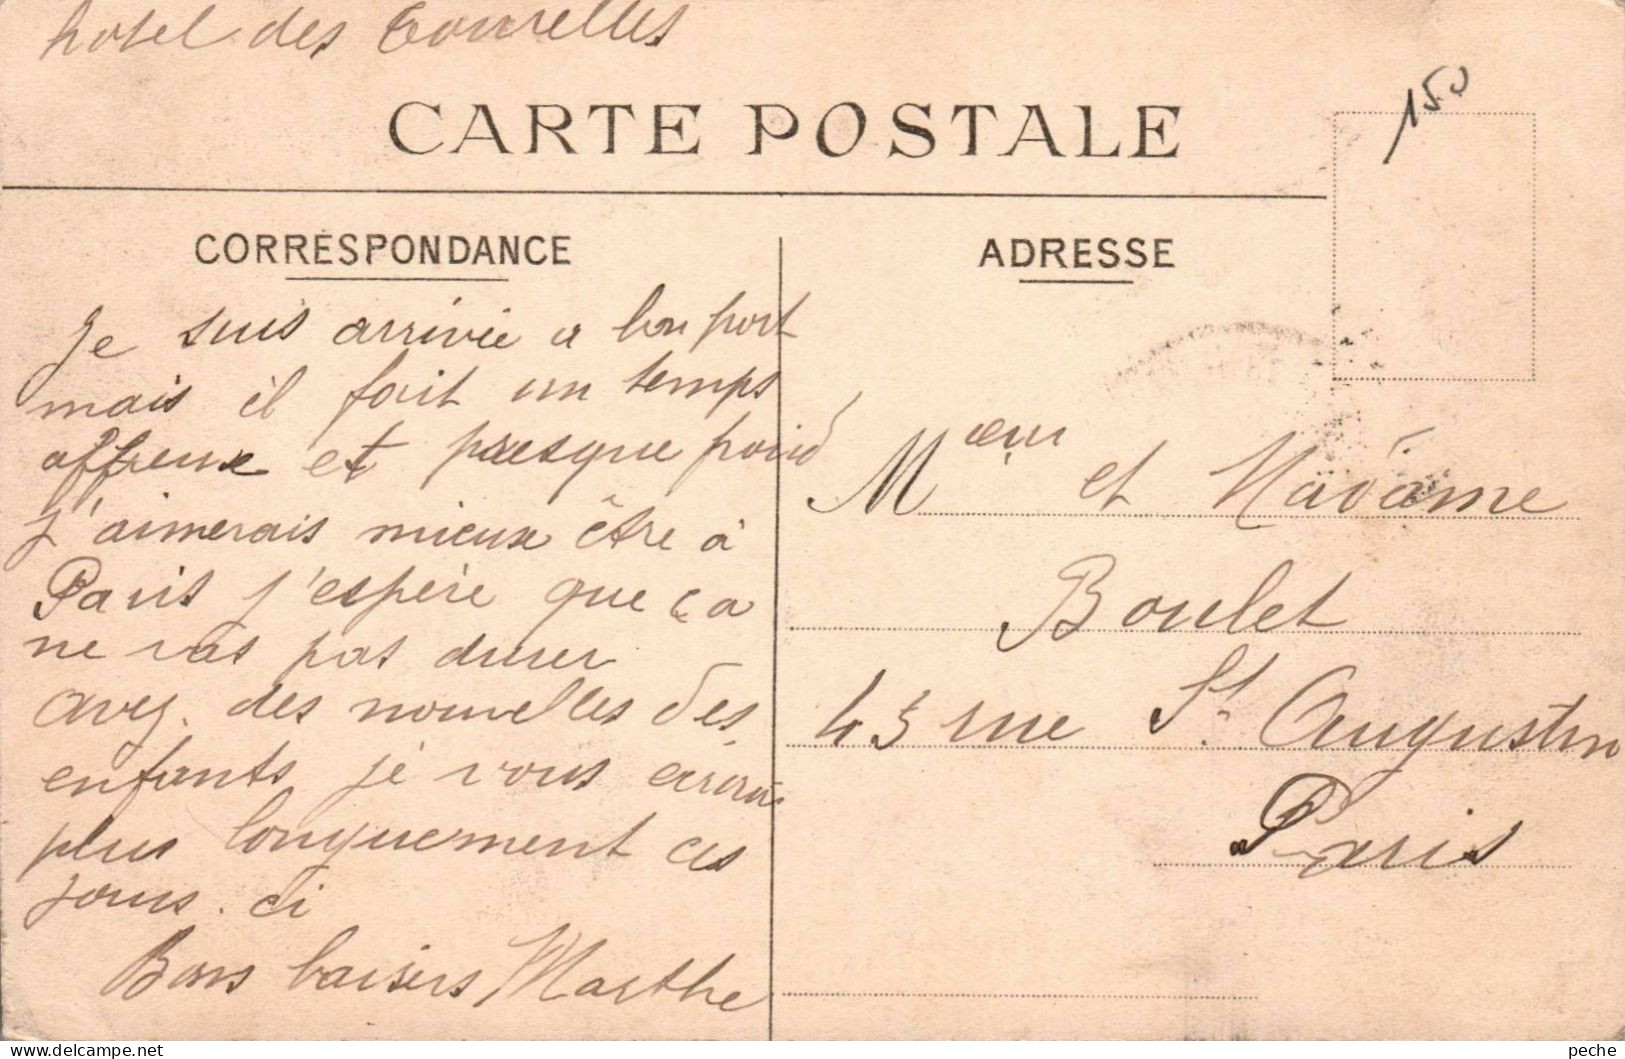 hotel des Tourelles
150
CARTE POSTALE
CORRESPONDANCE
Je suis arrivée a bon port
mais il fait un temps
affreux et presque froid
J'aimerais mieux être à
Paris j'espère que ça
ne vas pas durer
avez. des nouvelles des
enfants je vous écrirai
plus longuement ces
jours. ci
Bons baisers Marthe
ADRESSE
Mœur et Madame
Boulet
43 rue St. Augustin
Paris
peche